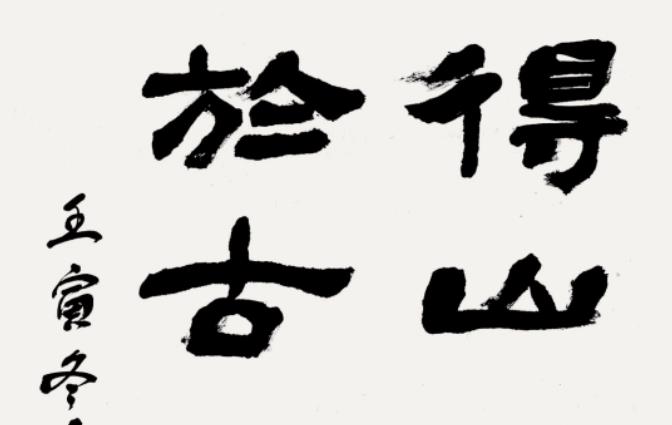 得山
於古
壬寅冬